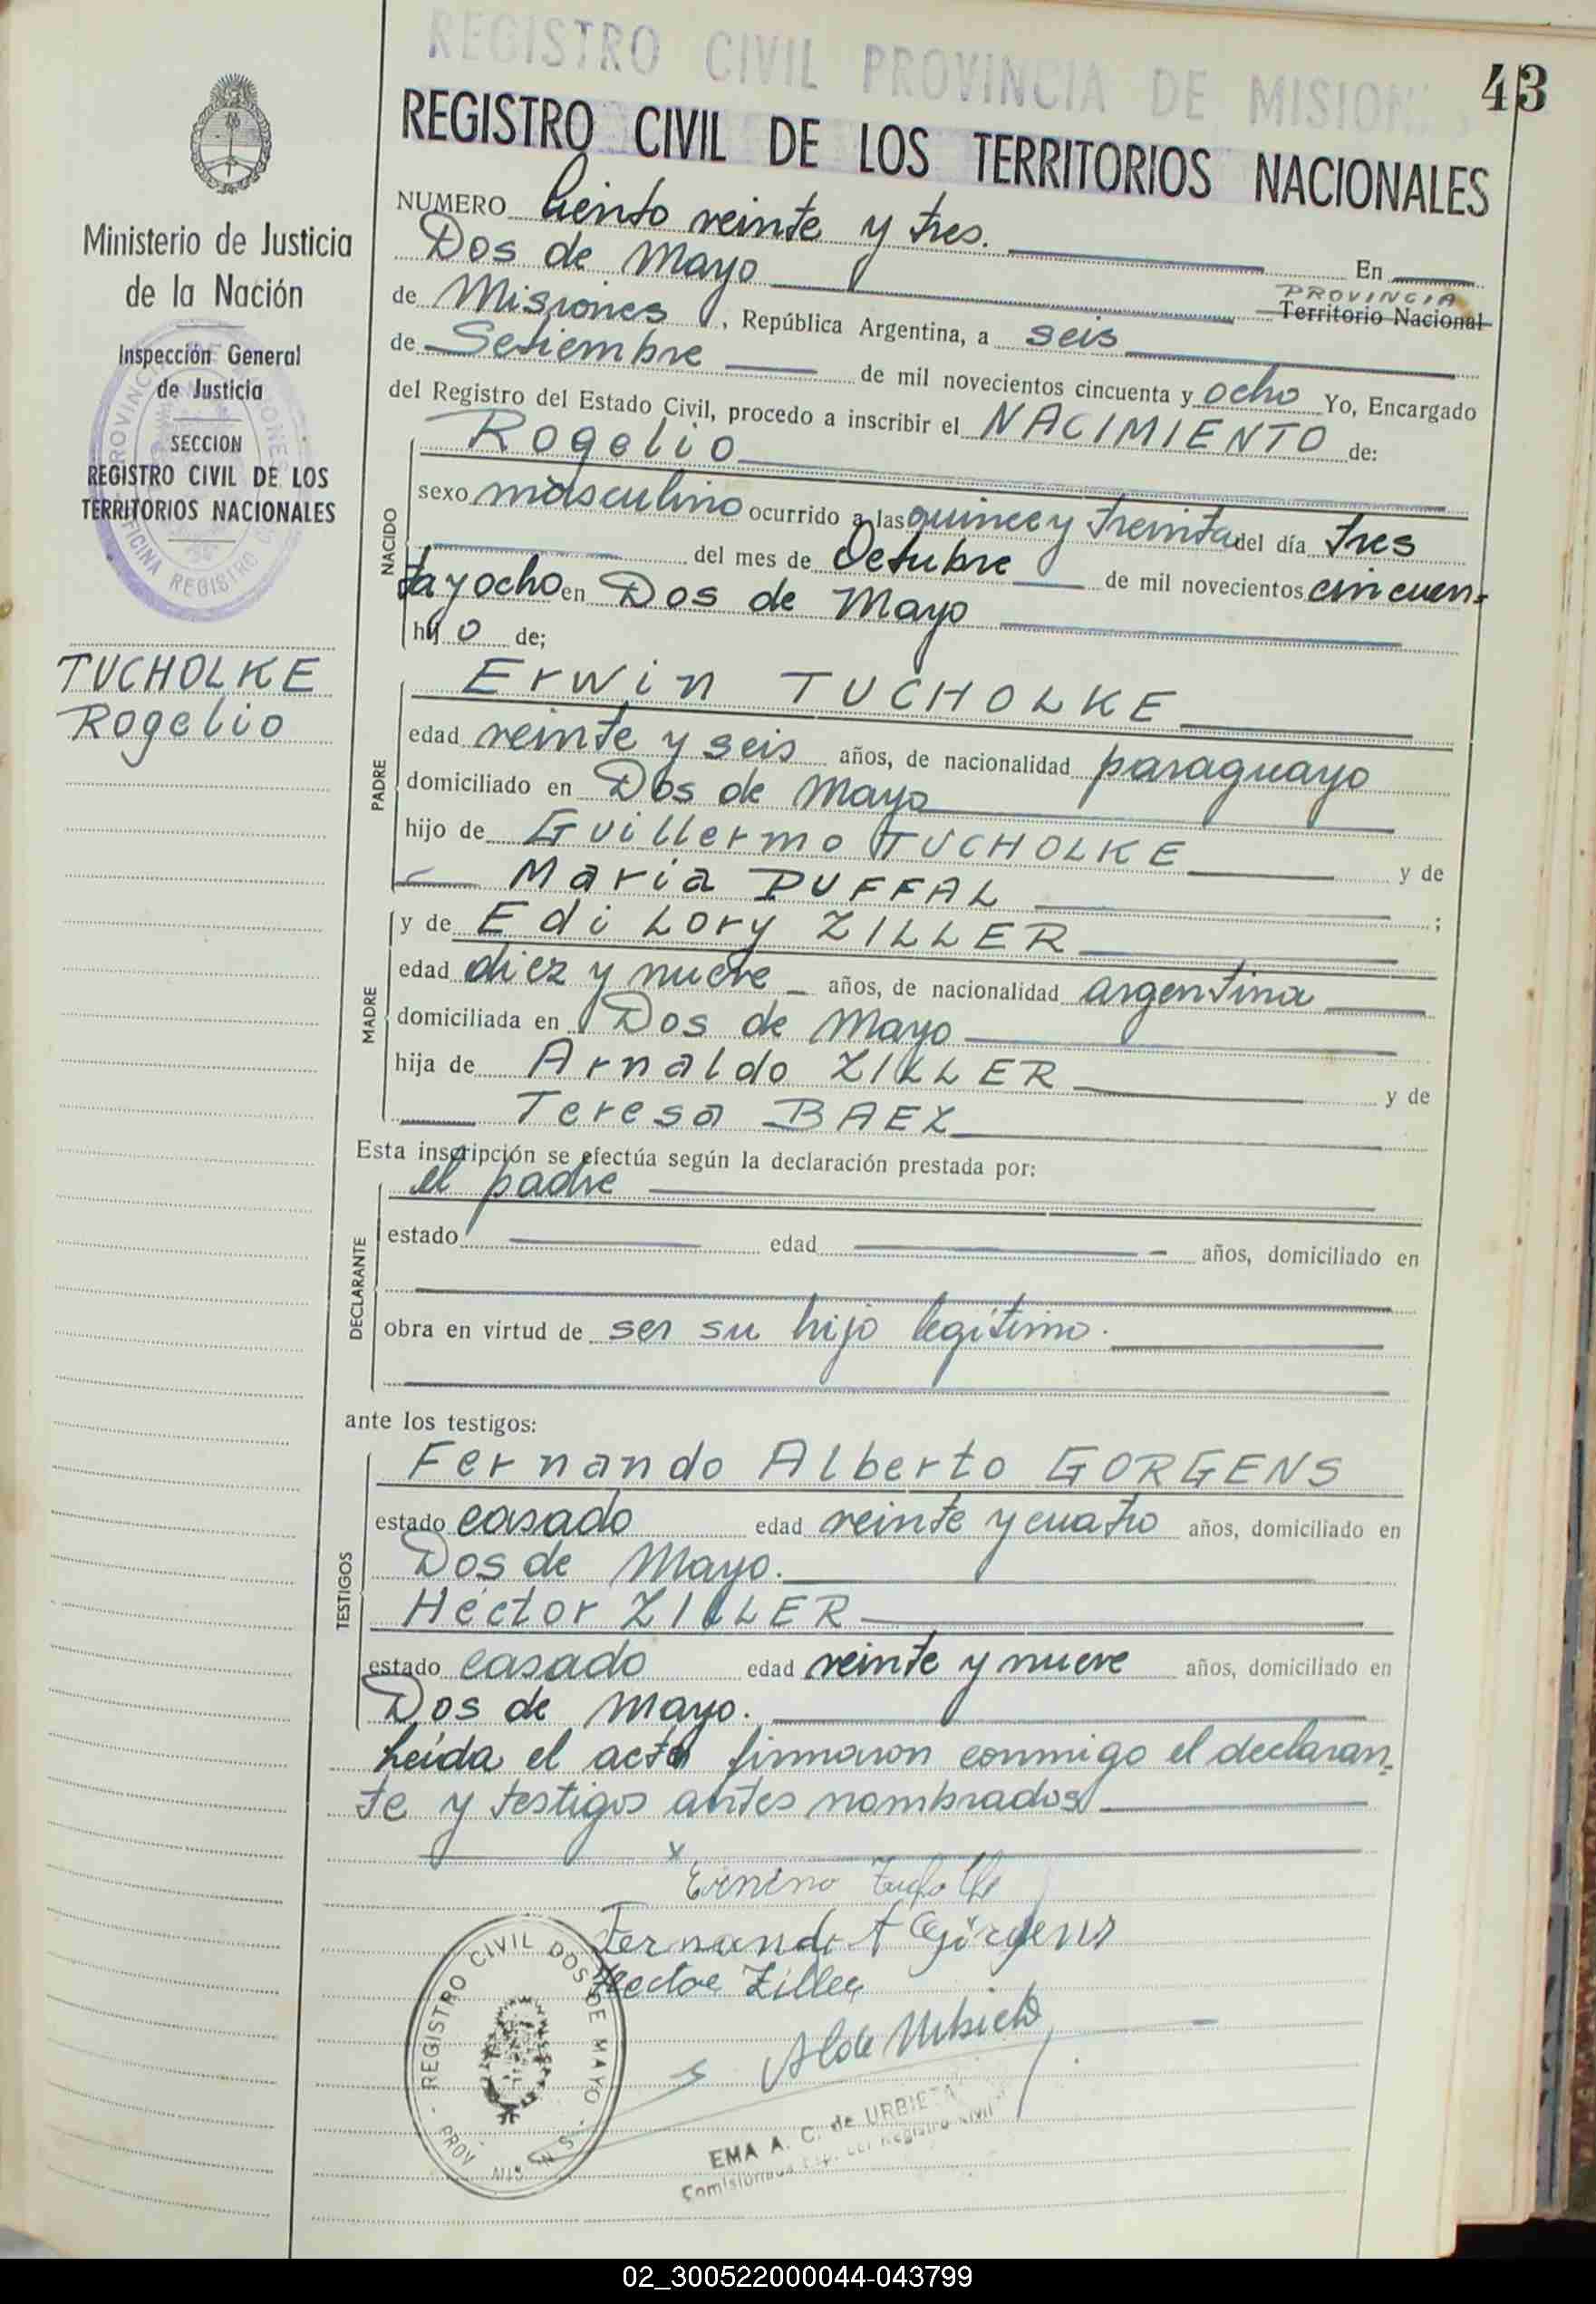 REGISTRO CIVIL PROVINCIA DE MISION
43
REGISTRO CIVIL DE LOS TERRITORIOS NACIONALES
Ministerio de Justicia
de la Nación
Inspección General
de Justicia
SECCION
REGISTRO CIVIL DE LOS
TERRITORIOS NACIONALES
TUCHOLKE
Rogelio
NUMERO Ciento veinte y tres. En
Dos de Mayo PROVINCIA Territorio Nacional
de Misiones, República Argentina, a seis
de Setiembre de mil novecientos cincuenta y ocho Yo, Encargado
del Registro del Estado Civil, procedo a inscribir el NACIMIENTO de:
NACIDO
Rogelio
sexo masculino ocurrido a las quince y treinta del día tres
del mes de Octubre de mil novecientos cincuen-
ta y ocho en Dos de Mayo
hijo de;
PADRE
Erwin TUCHOLKE
edad veinte y seis años, de nacionalidad paraguayo
domiciliado en Dos de Mayo
hijo de Guillermo TUCHOLKE y de
Maria DUFFAL ;
MADRE
y de Edi Lory ZILLER
edad diez y nueve años, de nacionalidad argentina
domiciliada en Dos de Mayo
hija de Arnaldo ZILLER y de
Teresa BAEZ
Esta inscripción se efectúa según la declaración prestada por:
DECLARANTE
el padre
estado edad años, domiciliado en
obra en virtud de ser su hijo legítimo.
ante los testigos:
TESTIGOS
Fernando Alberto GORGENS
estado casado edad veinte y cuatro años, domiciliado en
Dos de Mayo.
Héctor ZILLER
estado casado edad veinte y nueve años, domiciliado en
Dos de Mayo.
Leida el acta firmaron conmigo el declaran-
te y testigos antes nombrados
x
Fernando A Görgens
Hector Ziller
REGISTRO CIVIL DOS DE MAYO - PROV. MISIONES
EMA A. C. de URBIETA
Registro Civil
02_300522000044-043799